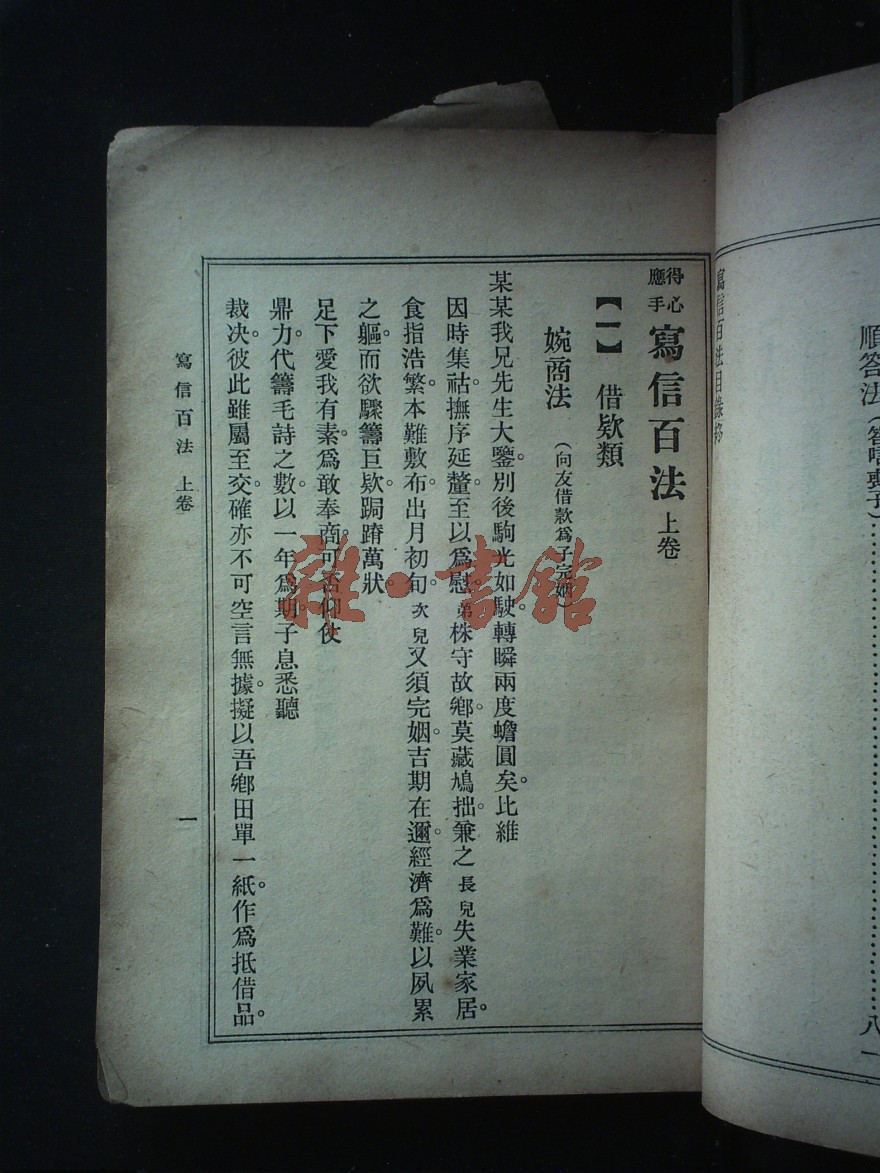 順答法(答唁喪子)……八一
寫信百法目錄終
得心應手 寫信百法 上卷
【一】 借欵類
婉商法 (向友借款爲子完姻)
某某我兄先生大鑒。別後駒光如駛。轉瞬兩度蟾圓矣。比維
因時集祜。撫序延釐。至以爲慰。弟株守故鄕。莫藏鳩拙。兼之長兒失業家居。
食指浩繁。本難敷布。出月初旬。次兒又須完姻。吉期在邇。經濟爲難。以夙累
之軀。而欲驟籌巨欵。跼蹐萬狀。
足下愛我有素。爲敢奉商。可否仰仗
鼎力。代籌毛詩之數。以一年爲期。子息悉聽
裁决。彼此雖屬至交。確亦不可空言無據。擬以吾鄕田單一紙。作爲抵借品。
寫信百法 上卷
一
雜·書館